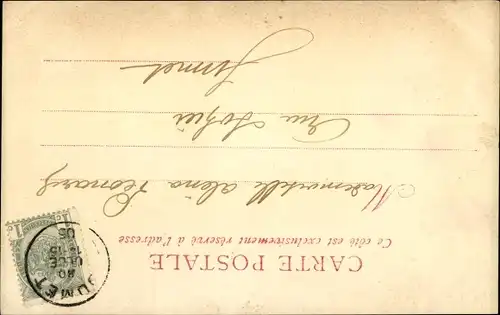 CARTE POSTALE
Ce côté est exclusivement réservé à l'adresse
Mademoiselle Aléna Léonard
Rue Sohier
Jumet
1c 1c
JUMET